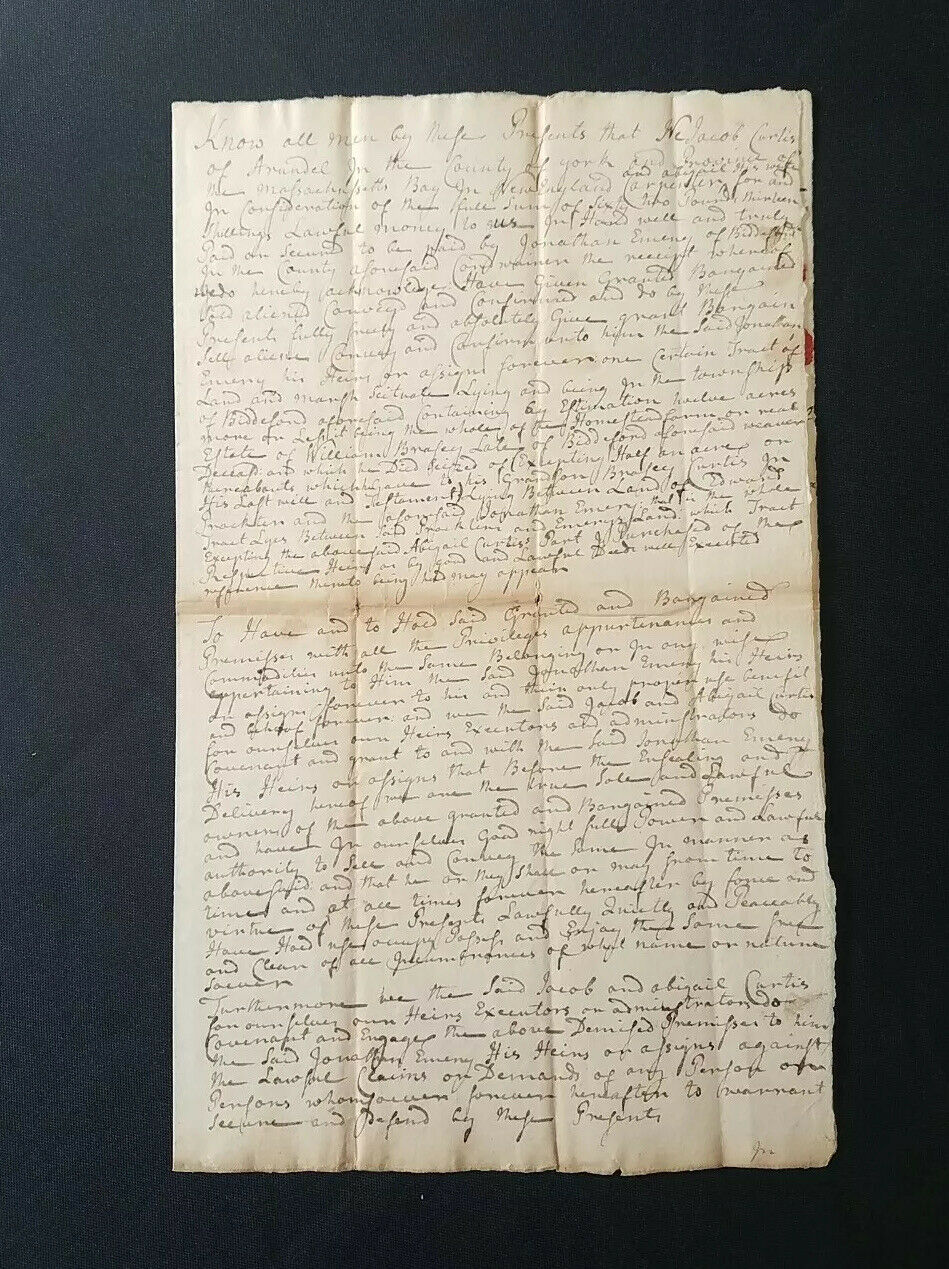 Know all men by these Presents that We Jacob Curtis
of Arundel In the County of york and Province of
and abigail His wife
the Massachusetts Bay In New England Carpenter for and
In Consideration of the full Sum of Sixty two Pounds thirteen
Shillings Lawful money to us In Hand well and truly
Paid or Secured to be paid by Jonathan Emery of Biddeford
In the County aforesaid Cordwainer the receipt whereof
wedo hereby acknowledge Have Given Granted Bargained
Sold aliened Conveyd and Confirmed and do by these
Presents fully freely and absolutely Give grant Bargain
Sell aliene Convey and Confirm unto him the Said Jonathan
Emery his Heirs or assigns forever one Certain Tract of
Land and marsh Scituate Lying and being In the township
of Biddeford aforesaid Containing by Estimation twelve acres
more or Less it being the whole of the Homestead farm or real
Estate of William Brasey Late of Biddeford aforesaid weaver
Deceasd and which he Died Seized of (Excepting Half an acre or
thereabouts which Gave to his Grandson Brasey Curtis In
His Last will and Testament) Lying Between Land of Edward
and the aforesaid Jonathan Emery that is the whole
Tract Lyes Between Said and Emerys Land which Tract
Excepting the abovesaid Abigail Curtis's Part Is Purchased of the
Respective Heirs as by good and Lawful Deeds well Executed
referrence thereto being Had may appear
To Have and to Hold Said Granted and Bargained
Premisses with all the Privileges appurtenances and
Commodities unto the Same Belonging or In any wise
appertaining to Him the Said Jonathan Emery his Heirs
or assigns forever to his and their only proper use benefit
and behoof forever and we the Said Jacob and Abigail Curtis
for ourselves our Heirs Executors and administrators do
Covenant and grant to and with the Said Jonathan Emery
His Heirs or assigns that Before the Ensealing and
Delivery hereof we are the true Sole and Lawful
owners of the above granted and Bargained Premisses
and have In ourselves Good right full Power and Lawful
authority to Sell and Convey the Same In manner as
abovesaid and that he or they Shall or may from time to
time and at all times forever hereafter by force and
virtue of these Presents Lawfully Quietly and Peaceably
Have Hold use occupy Possess and Enjoy the Same free
and Clear of all Incumbrances of what name or nature
Soever
Furthermore we the Said Jacob and abigail Curtis
for ourselves our Heirs Executors or administrators do
Covenant and Engage the above Demised Premisses to him
the Said Jonathan Emery His Heirs or assigns against
the Lawful Claims or Demands of any Person or
Persons whomsoever forever hereafter to warrant
Secure and Defend by these Presents
In